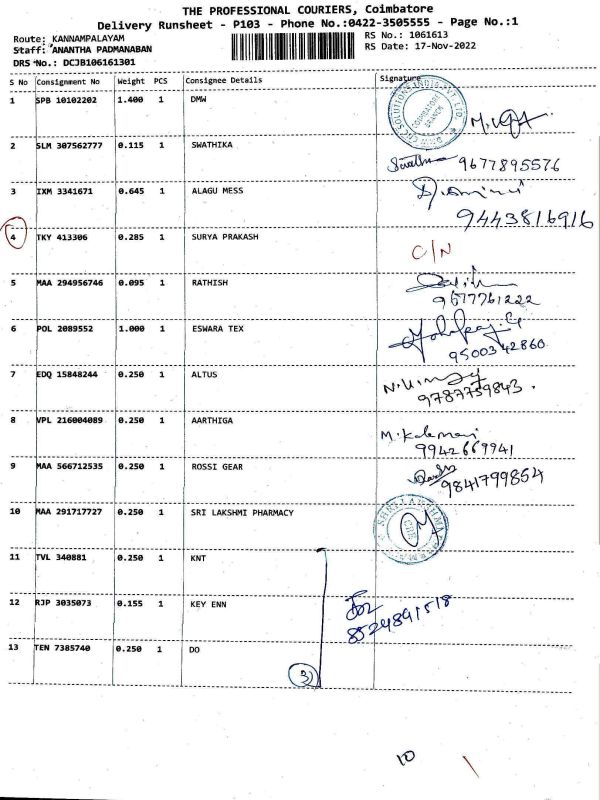 THE PROFESSIONAL COURIERS, Coimbatore
Delivery Runsheet - P103 - Phone No.:0422-3505555 - Page No.:1
Route: KANNAMPALAYAM RS No.: 1061613
Staff: ANANTHA PADMANABAN RS Date: 17-Nov-2022
DRS No.: DCJB106161301
S No Consignment No Weight PCS Consignee Details Signature
1 SPB 10102202 1.400 1 DMW
COIMBATORE BRANCH
2 SLM 307562777 0.115 1 SWATHIKA 9677895576
3 IXM 3341671 0.645 1 ALAGU MESS
9443816916
4 TKY 413306 0.285 1 SURYA PRAKASH
C/N
5 MAA 294956746 0.095 1 RATHISH
9677761222
6 POL 2089552 1.000 1 ESWARA TEX
9500342860
7 EDQ 15848244 0.250 1 ALTUS
9787759843.
8 VPL 216004089 0.250 1 AARTHIGA
9942669941
9 MAA 566712535 0.250 1 ROSSI GEAR
9841799854
10 MAA 291717727 0.250 1 SRI LAKSHMI PHARMACY
11 TVL 340881 0.250 1 KNT
12 RJP 3035073 0.155 1 KEY ENN
8524891518
13 TEN 7385740 0.250 1 DO
3
10